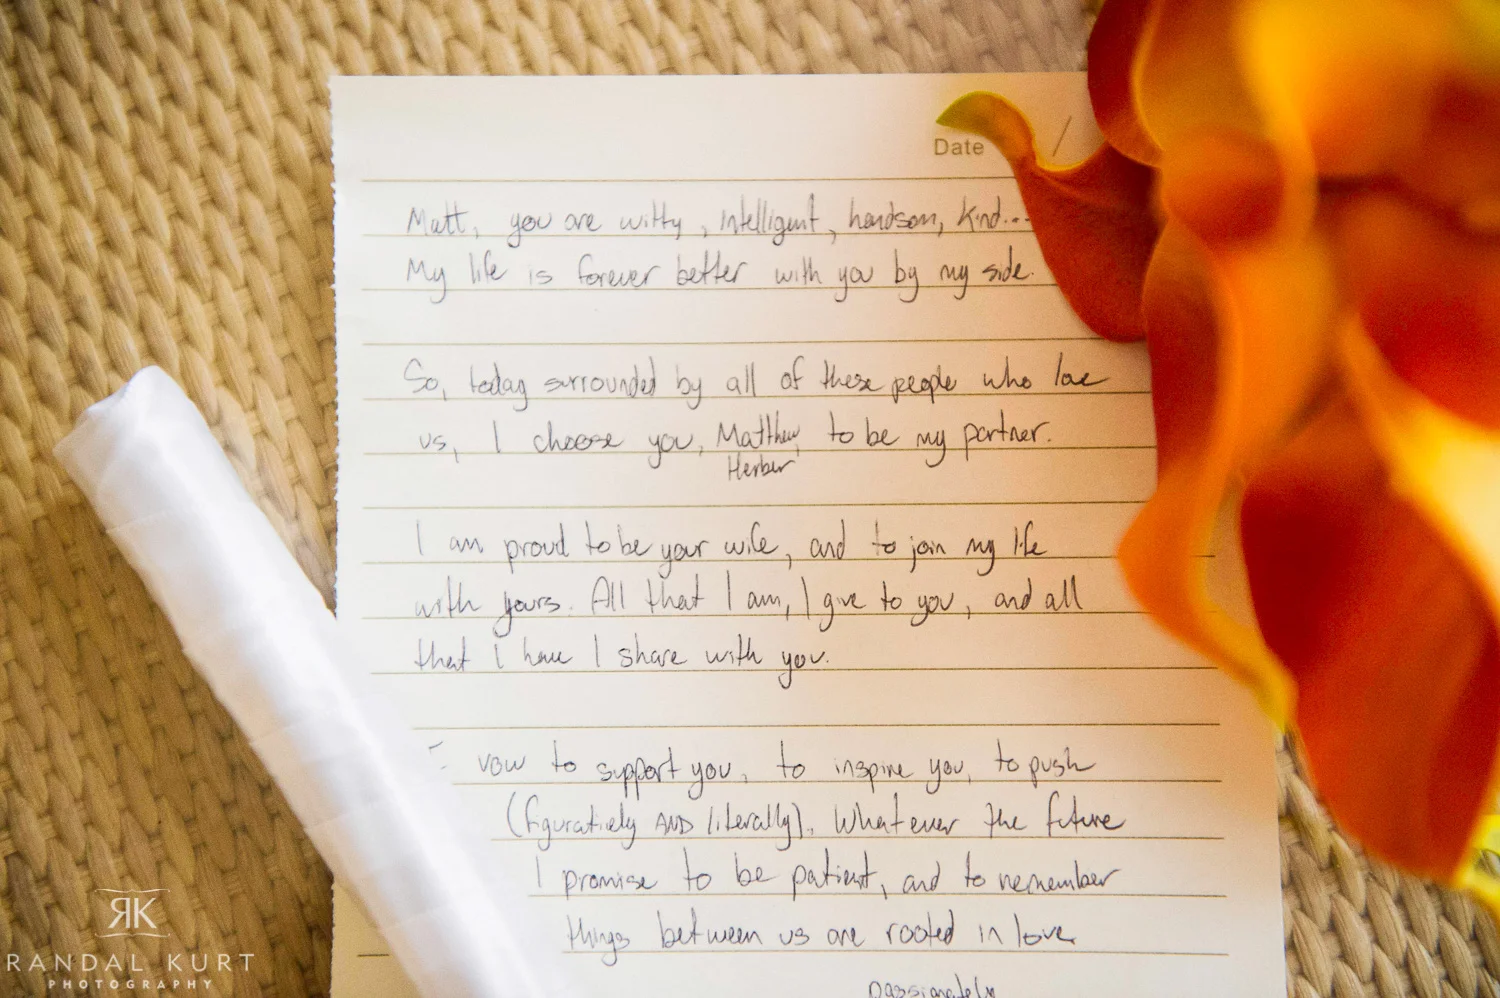 Date /
Matt, you are witty, intelligent, handsom, kind...
My life is forever better with you by my side.
So, today surrounded by all of these people who love
us, I choose you, Matthew, to be my partner.
Herber
I am proud to be your wife, and to join my life
with yours. All that I am, I give to you, and all
that I have I share with you.
vow to support you, to inspire you, to push
(figuratively AND literally). Whatever the future
I promise to be patient, and to remember
things between us are rooted in love.
passionately
RK
RANDAL KURT
PHOTOGRAPHY